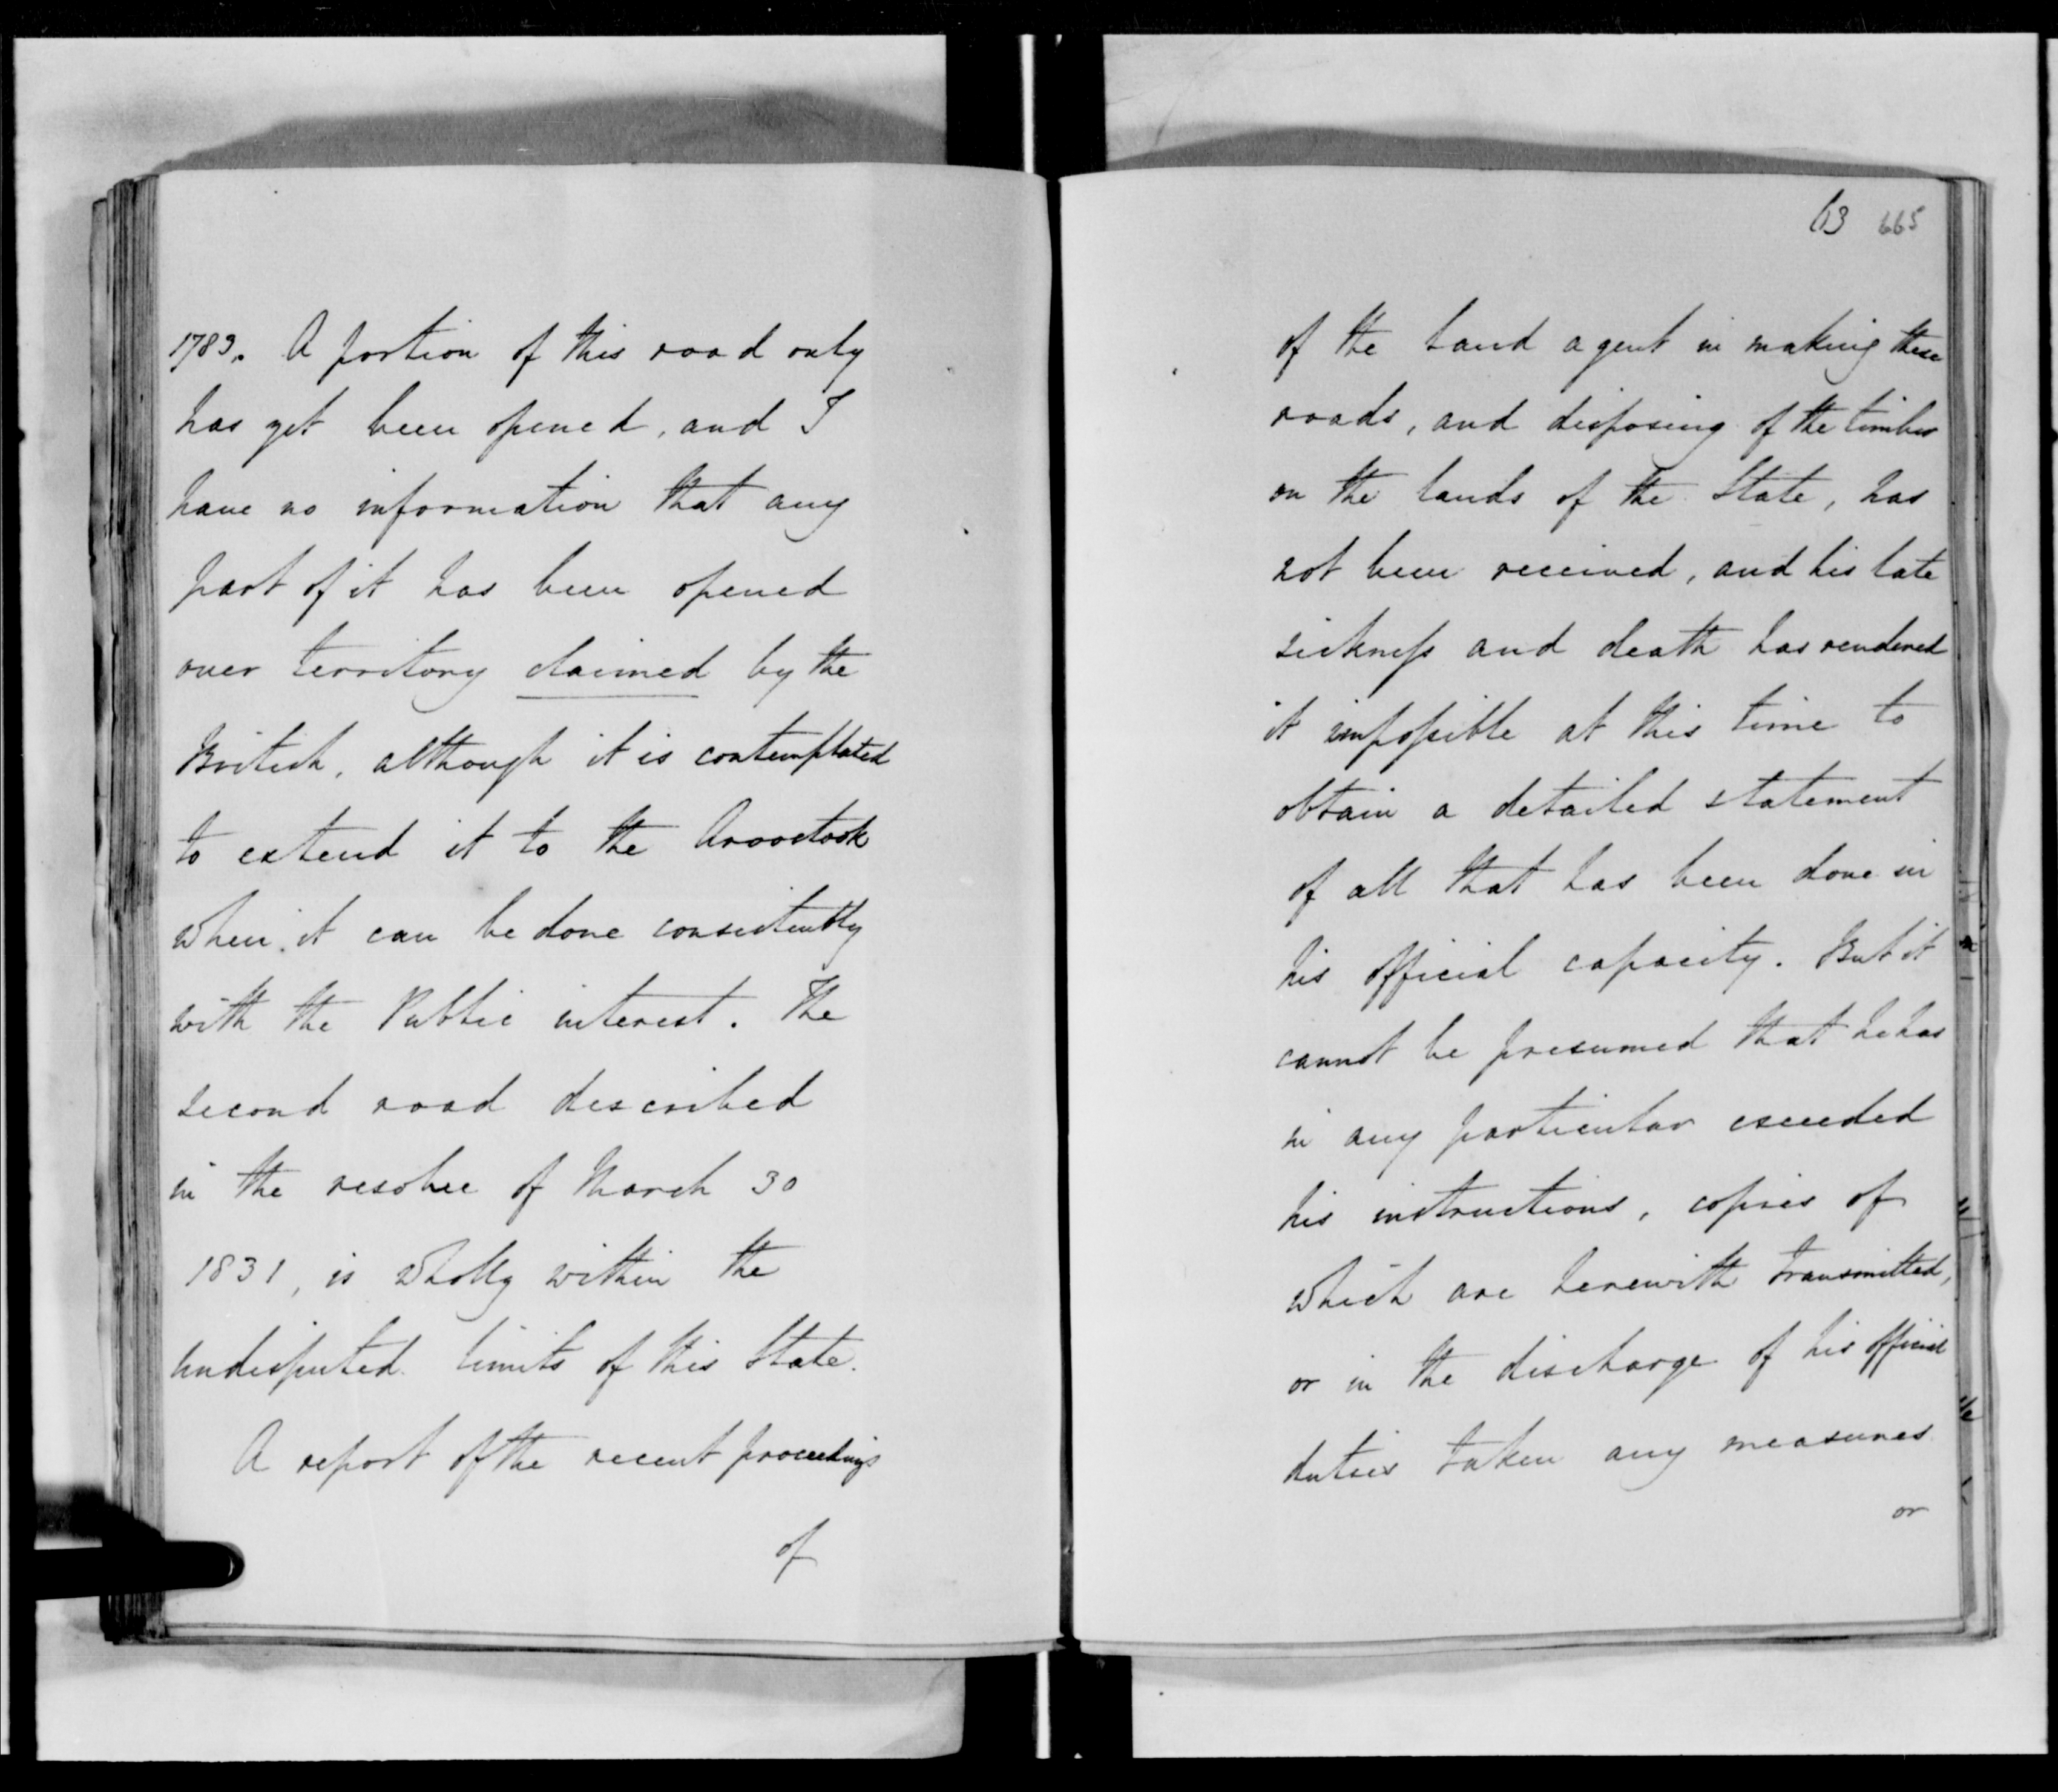 1783. A portion of this road only
has yet been opened, and I
have no information that any
part of it has been opened
over territory claimed by the
British, although it is contemplated
to extend it to the Aroostook
when it can be done consistently
with the Public interest. The
second road described
in the resolve of March 30
1831, is wholly within the
undisputed limits of this State.
A report of the recent proceedings
of
63 665
of the Land agent in making these
roads, and disposing of the timber
on the lands of the State, has
not been received, and his late
sickness and death has rendered
it impossible at this time to
obtain a detailed statement
of all that has been done in
his official capacity. But it
cannot be presumed that he has
in any particular exceeded
his instructions, copies of
which are herewith transmitted,
or in the discharge of his official
duties taken any measures
or